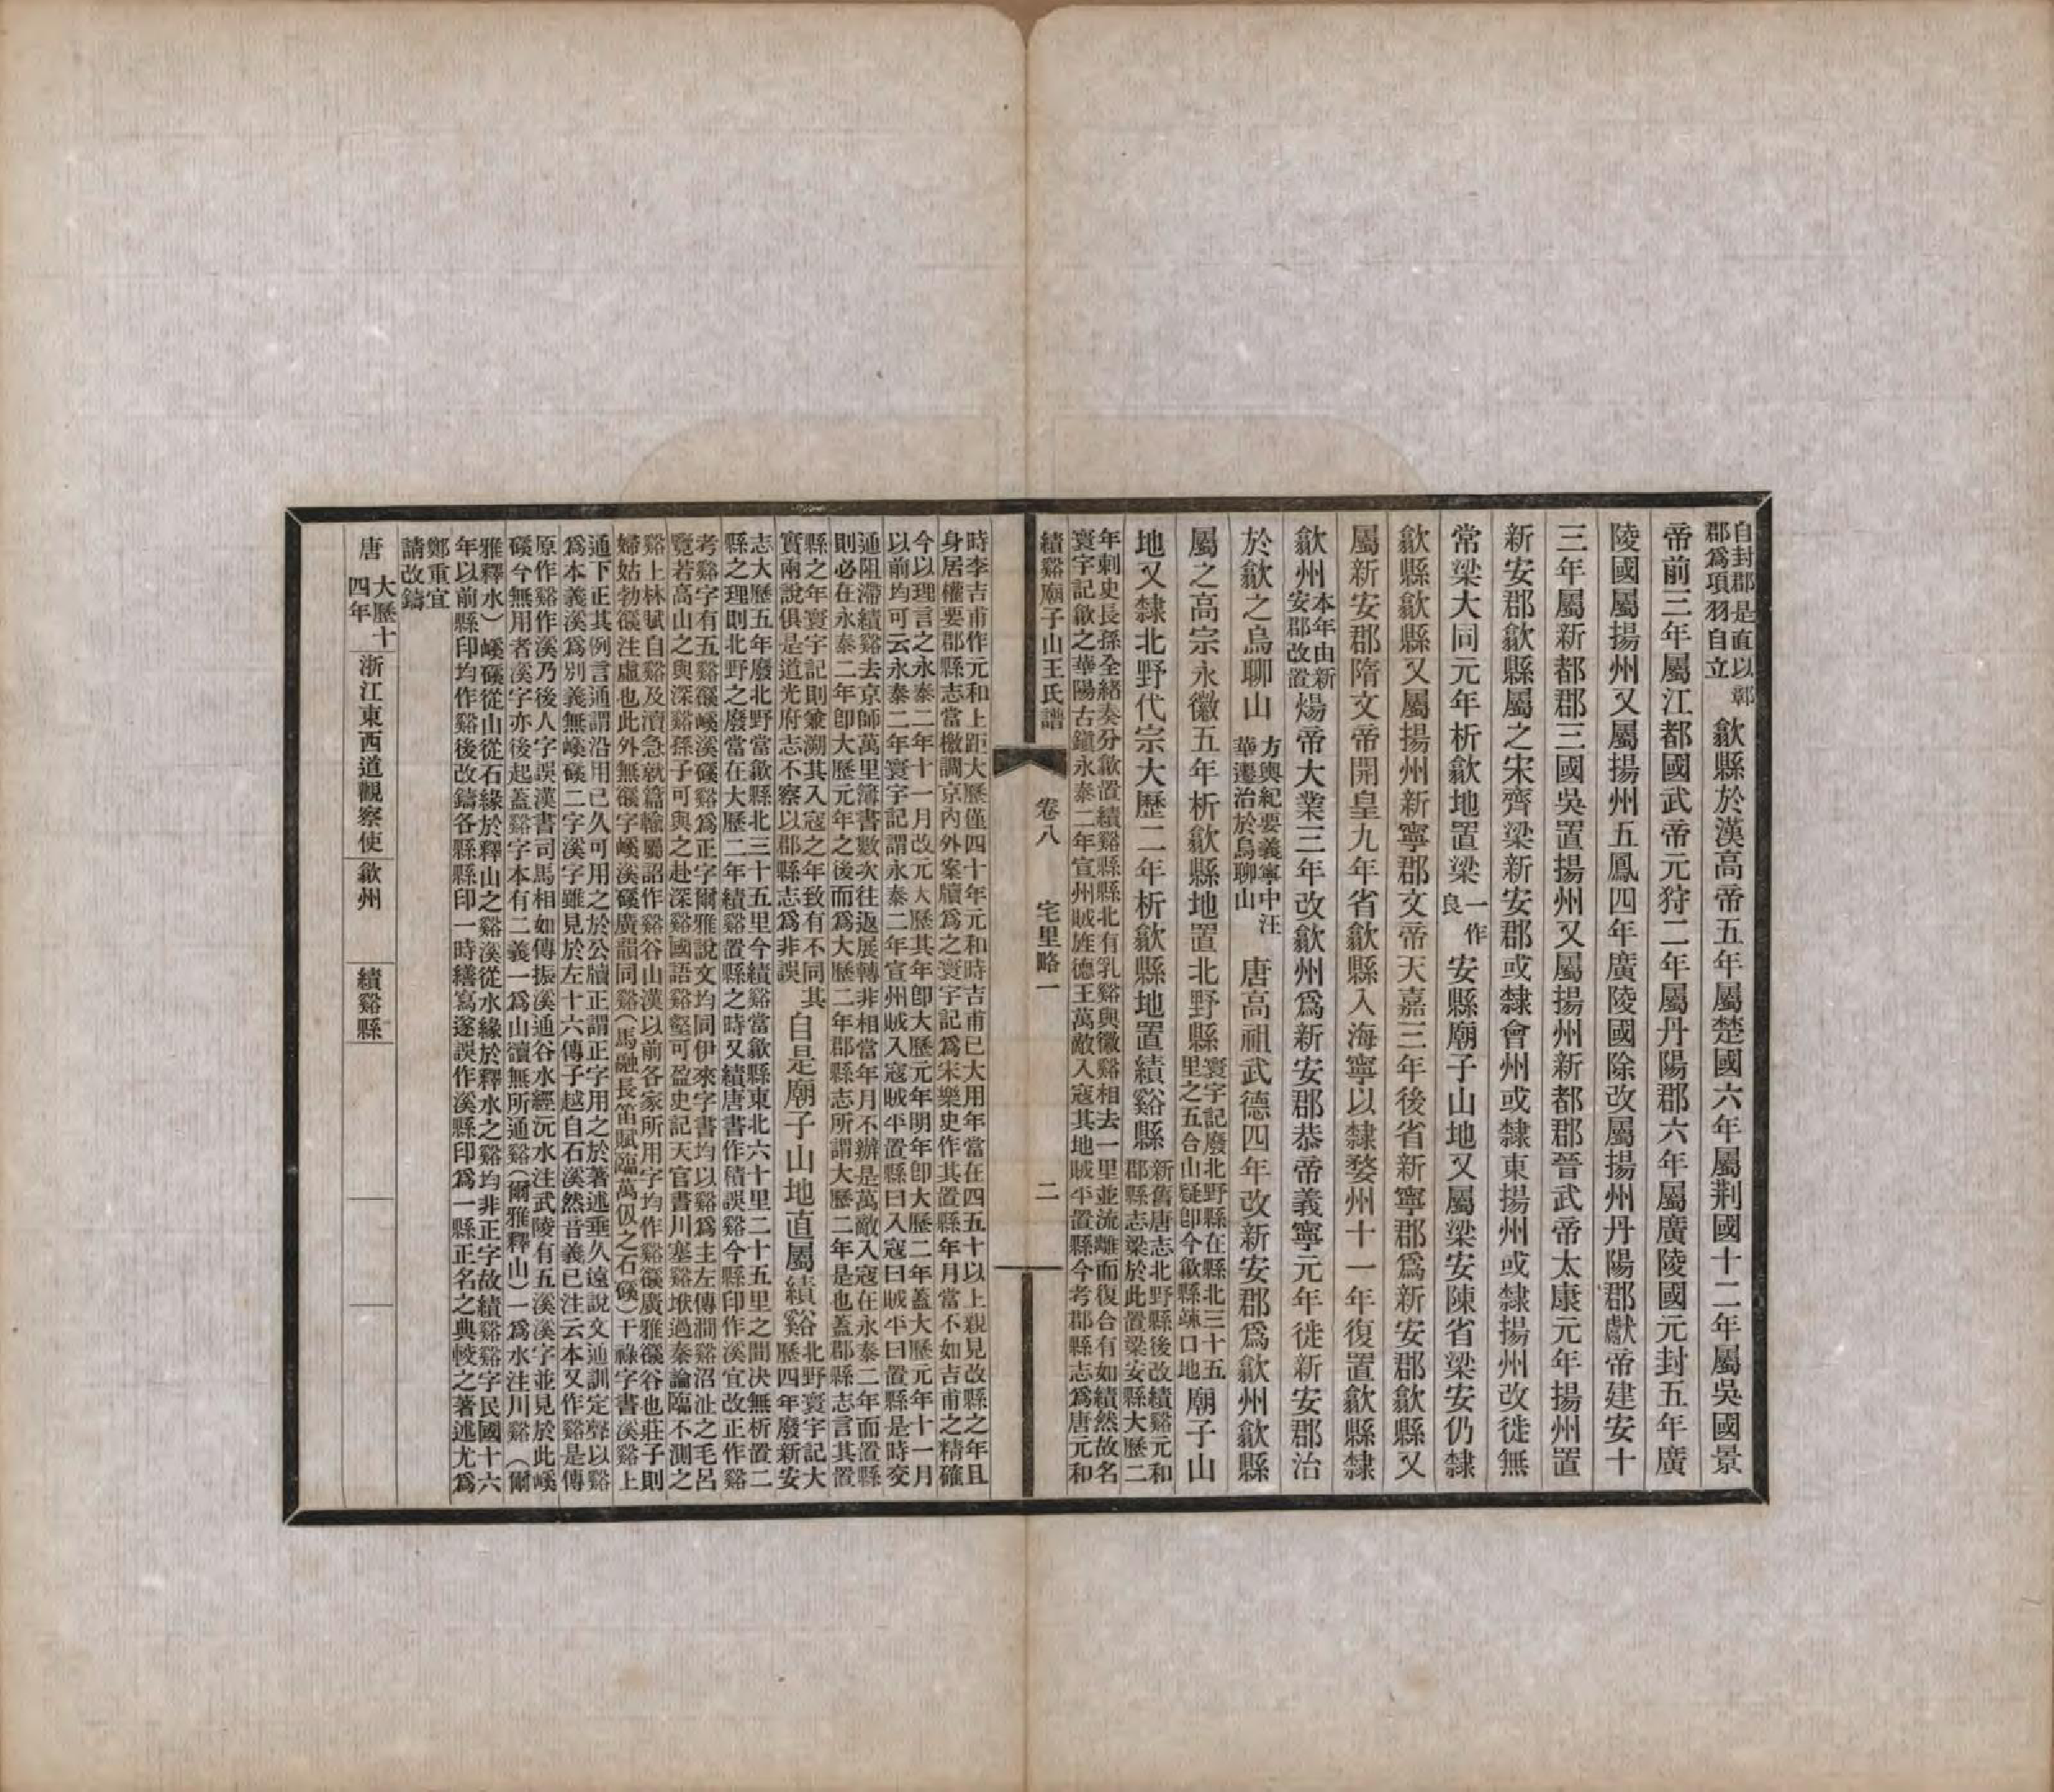 自封郡是直以鄣
郡爲項羽自立
歙縣於漢高帝五年屬楚國六年屬荆國十二年屬吳國景
帝前三年屬江都國武帝元狩二年屬丹陽郡六年屬廣陵國元封五年廣
陵國屬揚州又屬揚州五鳳四年廣陵國除改屬揚州丹陽郡獻帝建安十
三年屬新都郡三國吳置揚州又屬揚州新都郡晉武帝太康元年揚州置
新安郡歙縣屬之宋齊梁新安郡或隸會州或隸東揚州或隸揚州改徙無
常梁大同元年析歙地置梁
一作
良
安縣廟子山地又屬梁安陳省梁安仍隸
歙縣歙縣又屬揚州新寧郡文帝天嘉三年後省新寧郡爲新安郡歙縣又
屬新安郡隋文帝開皇九年省歙縣入海寧以隸婺州十一年復置歙縣隸
歙州
本年由新
安郡改置
煬帝大業三年改歙州爲新安郡恭帝義寧元年徙新安郡治
於歙之烏聊山
方輿紀要義寧中汪
華遷治於烏聊山
唐高祖武德四年改新安郡爲歙州歙縣
屬之高宗永徽五年析歙縣地置北野縣
寰宇記廢北野縣在縣北三十五
里之五合山疑卽今歙縣䔖口地
廟子山
地又隸北野代宗大歷二年析歙縣地置績谿縣
新舊唐志北野縣後改績谿元和
郡縣志梁於此置梁安縣大歷二
年刺史長孫全緒奏分歙置績谿縣縣北有乳谿與徽谿相去一里並流離而復合有如績然故名
寰宇記歙之華陽古鎭永泰二年宣州賊旌德王萬敵入寇其地賊平置縣今考郡縣志爲唐元和
績谿廟子山王氏譜
卷八
宅里略一
二
時李吉甫作元和上距大歷僅四十年元和時吉甫已大用年當在四五十以上親見改縣之年且
身居權要郡縣志當檄調京內外案牘爲之寰宇記爲宋樂史作其置縣年月當不如吉甫之精確
今以理言之永泰二年十一月改元大歷其年卽大歷元年明年卽大歷二年蓋大歷元年十一月
以前均可云永泰二年寰宇記謂永泰二年宣州賊入寇賊平置縣曰入寇曰賊平曰置縣是時交
通阻滯績谿去京師萬里簿書數次往返展轉非相當年月不辦是萬敵入寇在永泰二年而置縣
則必在永泰二年卽大歷元年之後而爲大歷二年郡縣志所謂大歷二年是也蓋郡縣志言其置
縣之年寰宇記則兼溯其入寇之年致有不同其
實兩說俱是道光府志不察以郡縣志爲非誤
自是廟子山地直屬績谿
北野寰宇記大
歷四年廢新安
志大歷五年廢北野當歙縣北三十五里今績谿當歙縣東北六十里二十五里之間決無析置二
縣之理則北野之廢當在大歷二年績谿置縣之時又績唐書作積誤谿今縣印作溪宜改正作谿
考谿字有五谿䜫嵠溪磎谿爲正字爾雅說文均同伊來字書均以谿爲主左傳澗谿沼沚之毛呂
覽若高山之與深谿孫子可與之赴深谿國語谿壑可盈史記天官書川塞谿垘過秦論臨不測之
谿上林賦自谿及瀆急就篇輸屬詔作谿谷山漢以前各家所用字均作谿䜫廣雅䜫谷也莊子則
婦姑勃䜫注虛也此外無䜫字嵠溪磎廣韻同谿（馬融長笛賦臨萬仞之石磎）干祿字書溪谿上
通下正其例言通謂沿用已久可用之於公牘正謂正字用之於著述垂久遠說文通訓定聲以谿
爲本義溪爲別義無嵠磎二字溪字雖見於左十六傳子越自石溪然音義已注云本又作谿是傳
原作谿作溪乃後人字誤漢書司馬相如傳振溪通谷水經沅水注武陵有五溪溪字並見於此嵠
磎今無用者溪字亦後起蓋谿字本有二義一爲山瀆無所通谿（爾雅釋山）一爲水注川谿（爾
雅釋水）嵠磎從山從石緣於釋山之谿溪從水緣於釋水之谿均非正字故績谿谿字民國十六
年以前縣印均作谿後改鑄各縣縣印一時繕寫遂誤作溪縣印爲一縣正名之典較之著述尤爲
鄭重宜
請改鑄
唐
大歷十
四年
浙江東西道觀察使
歙州
績谿縣